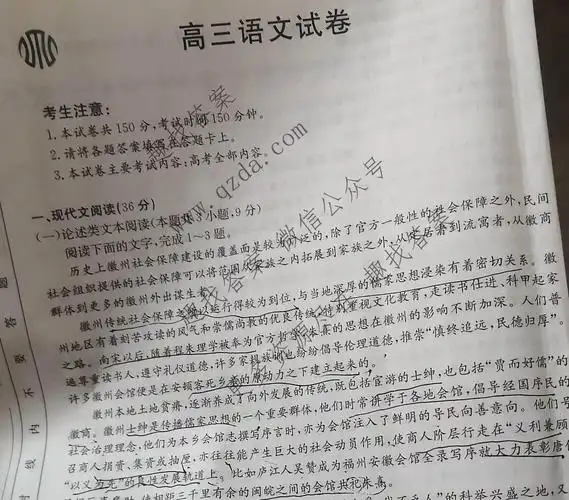 高三语文试卷
考生注意:
1.本试卷共150分,考试时间150分钟。
2.请将各题答案填写在答题卡上。
3.本试卷主要考试内容:高考全部内容。
一、现代文阅读(36分)
(一)论述类文本阅读(本题共3小题,9分)
阅读下面的文字,完成1~3题。
历史上徽州社会保障建设的覆盖面是较为广泛的,除了官方一般性的社会保障之外,民间
社会组织提供的社会保障可以将范围从家族之内拓展到家族之外,从定居者到流寓者,从徽商
群体到更多的徽州外出谋生者。
徽州传统社会保障之所以运行得较为到位,与当地深厚的儒家思想浸染有着密切关系。徽
州地区有着刻苦攻读的风气和崇儒尚教的优良传统,特别重视文化教育,走读书仕进、科甲起家
之路。南宋以后,随着程朱理学被奉为官方哲学,朱熹的思想在徽州的影响不断加深。人们普
遍尊重读书人,遵守礼仪道德,许多家族也纷纷倡导伦理道德,推崇“慎终追远,民德归厚”。
许多徽州会馆便是在安顿客死乡者的原动力之下建立起来的。
徽州本土地贫瘠,逐渐养成了向外发展的传统,既包括宦游的士绅,也包括“贾而好儒”的
徽商。徽州士绅是传播儒家思想的一个重要群体,他们时常讲学于各地会馆,倡导经国序民的
社会治理理念,他们为本乡会馆志撰写序言时,亦为会馆注入了鲜明的导民向善意向。他们号
召商人捐赀、集资或抽厘,亦往往能产生巨大的社会动员作用,使商人阶层行走在“义利兼顾
“以义为先”的良性发展轨道上。比如庐江人吴赞成为福州安徽会馆全录写序就大力表彰唐
使相距三千里有余的闽皖之间的会馆共祀朱熹。
的科举兴盛之地,又
答案
www.qzda.com
微信公众号
趣找答案
题
答
要
不
内
线